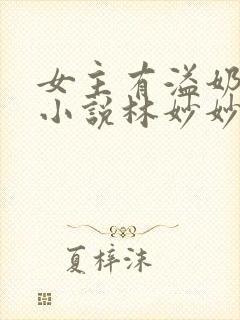 女主有溢奶
小说林妙妙
夏梓沫